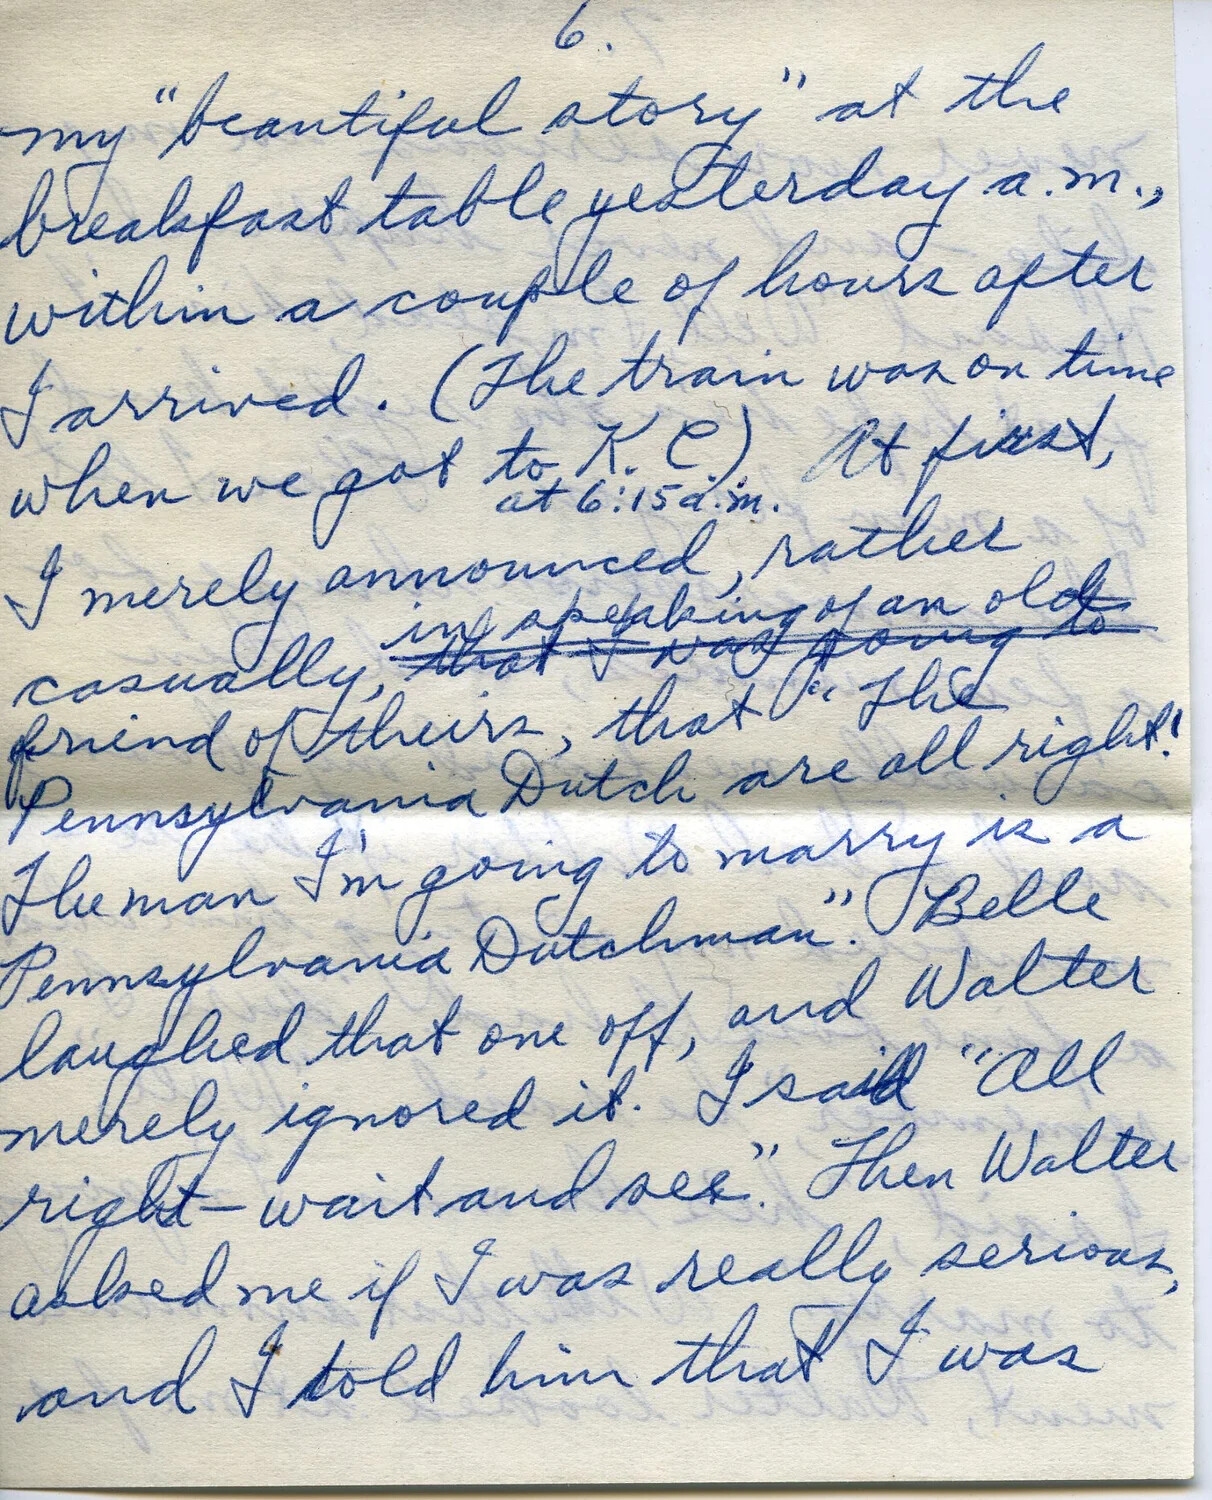 6.
my "beautiful story" at the
breakfast table yesterday a.m.,
within a couple of hours after
I arrived. (The train was on time
when we got to K.C.) At first,
at 6:15 a.m.
I merely announced, rather
in speaking of an old
casually, that I was going to
friend of theirs, that "The
Pennsylvania Dutch are all right!
The man I'm going to marry is a
Pennsylvania Dutchman". Belle
laughed that one off, and Walter
merely ignored it. I said "All
right - wait and see". Then Walter
asked me if I was really serious,
and I told him that I was